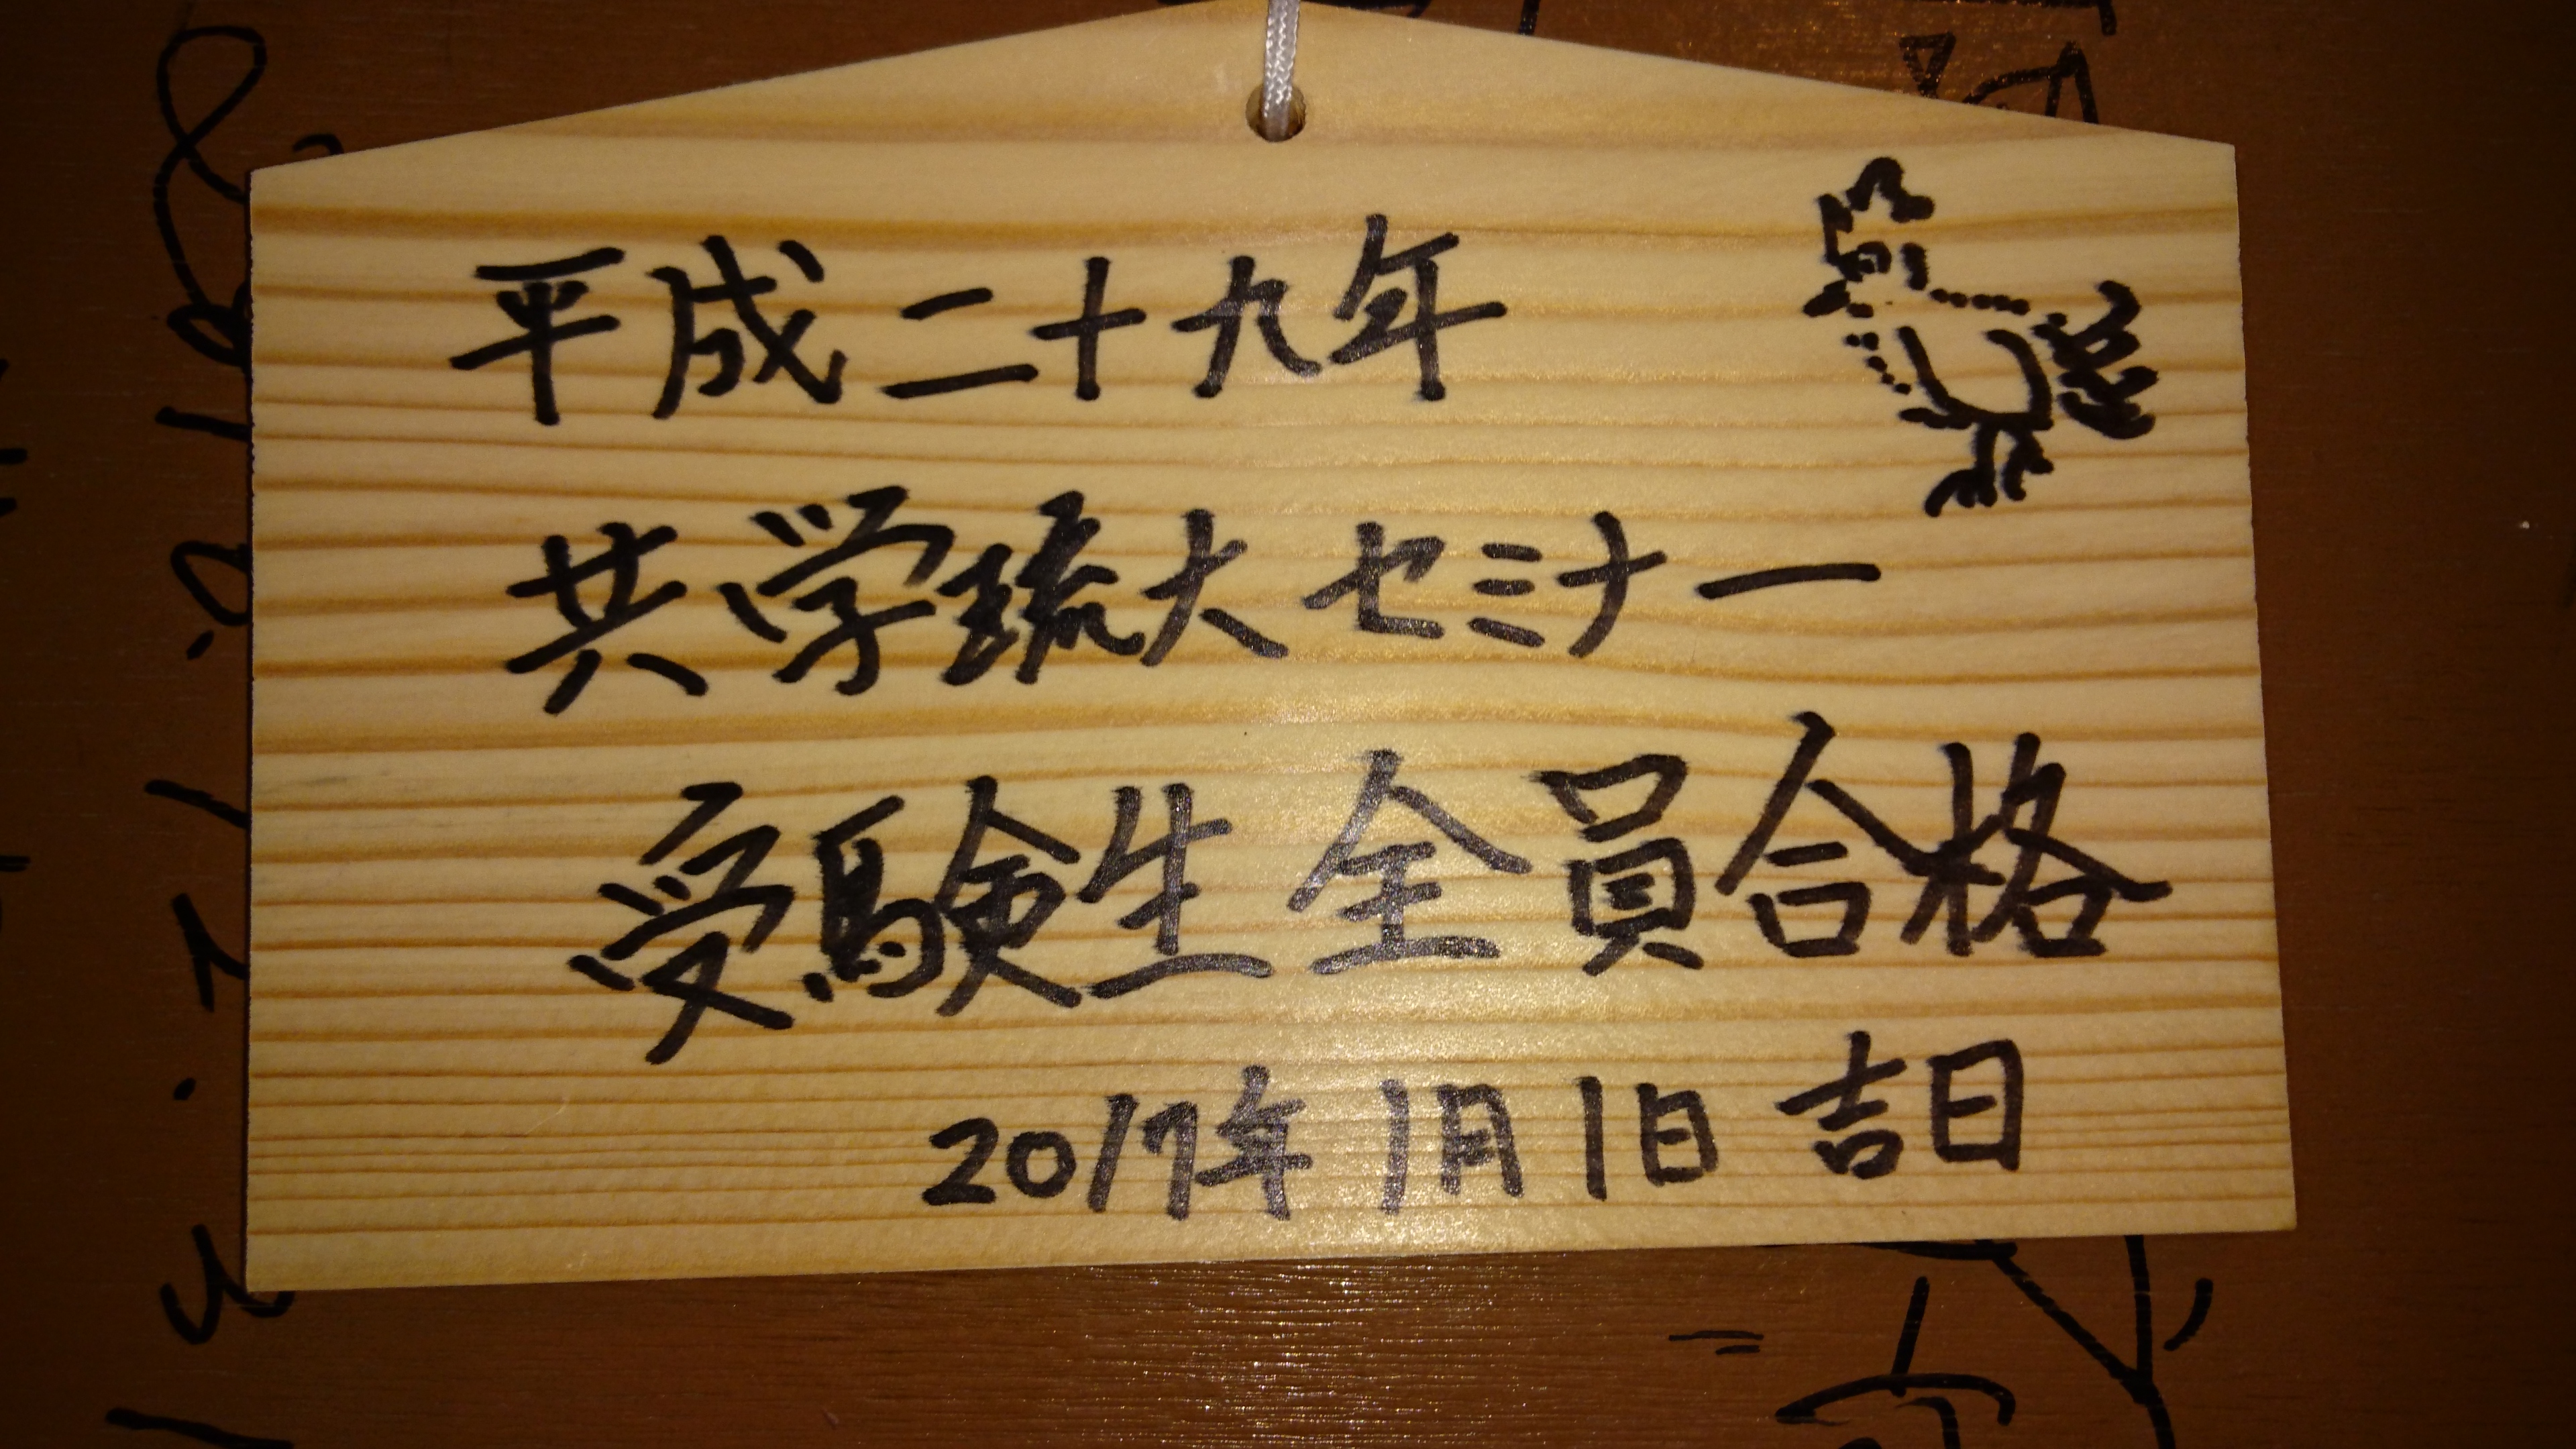 平成二十九年
共学琉大セミナー
受験生全員合格
2017年1月1日 吉日